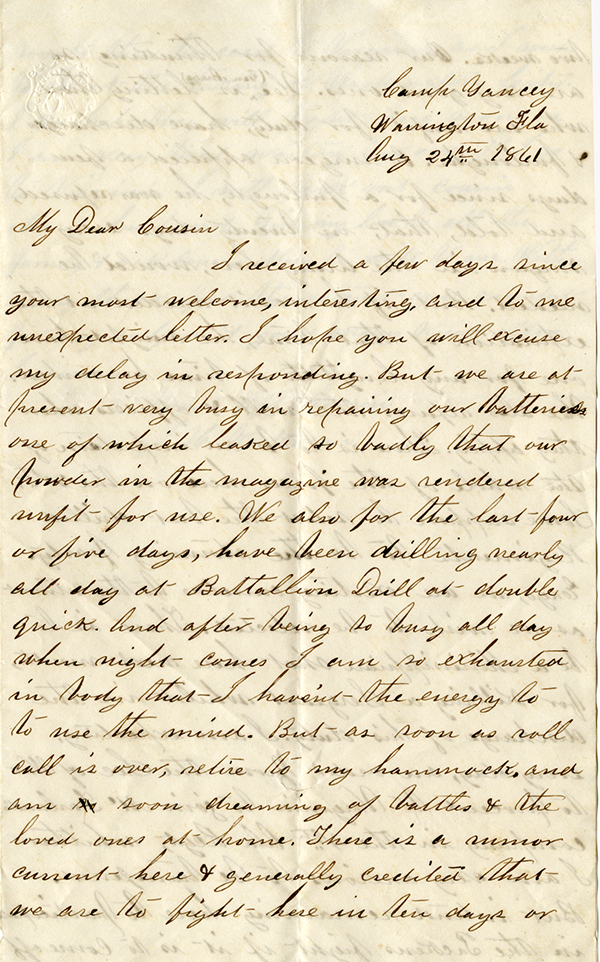 Camp Yancey
Warrington Fla
Aug 24th 1861
My Dear Cousin
I received a few days since
your most welcome, interesting, and to me
unexpected letter. I hope you will excuse
my delay in responding. But we are at
present very busy in repairing our batteries
one of which leaked so badly that our
powder in the magazine was rendered
unfit for use. We also for the last four
or five days, have been drilling nearly
all day at Battallion Drill at double
quick. And after being so busy all day
when night comes I am so exhausted
in body that I havent the energy to
to use the mind. But as soon as roll
call is over, retire to my hammock, and
am soon dreaming of battles & the
loved ones at home. There is a rumor
current here & generally credited that
we are to fight here in ten days or